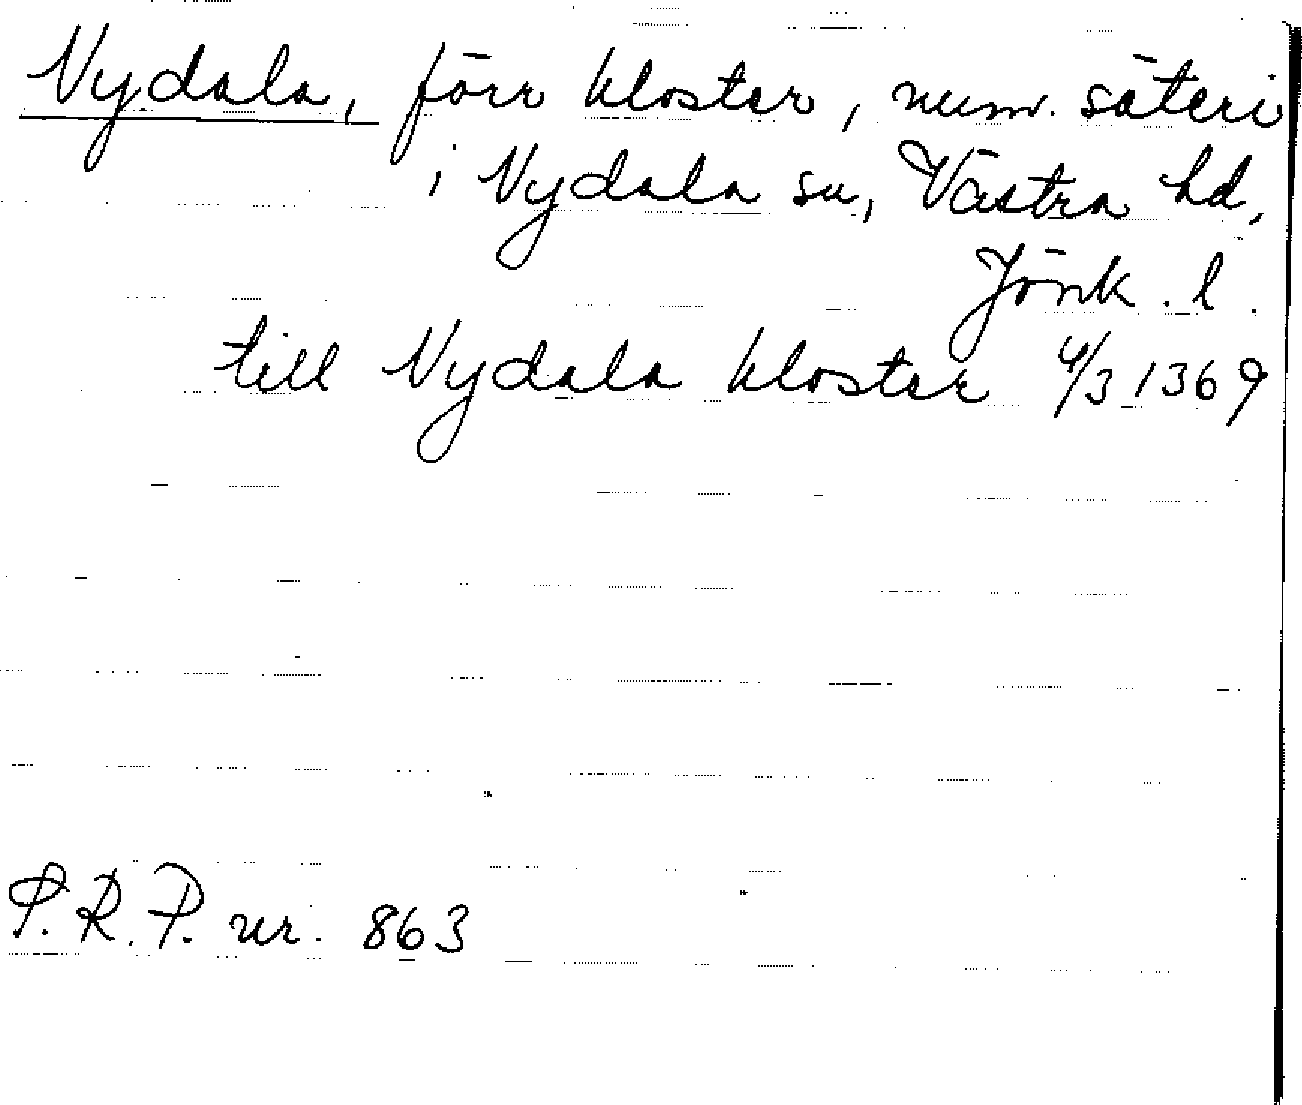 Nydala, förr kloster, num. säteri
i Nydala sn, Västra hd,
Jönk. l.
till Nydala kloster 4/3 1369
P.R.P. nr. 863